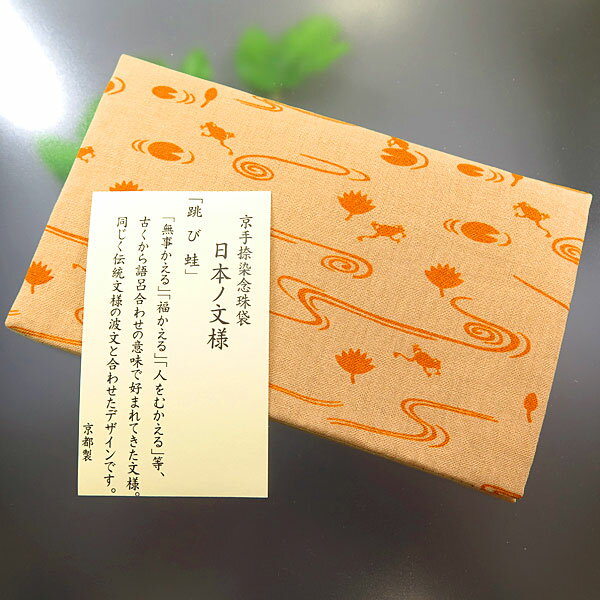 京手捺染念珠袋
日本ノ文様
「跳び蛙」
「無事かえる」「福かえる」「人をむかえる」等、
古くから語呂合わせの意味で好まれてきた文様。
同じく伝統文様の波文と合わせたデザインです。
京都製